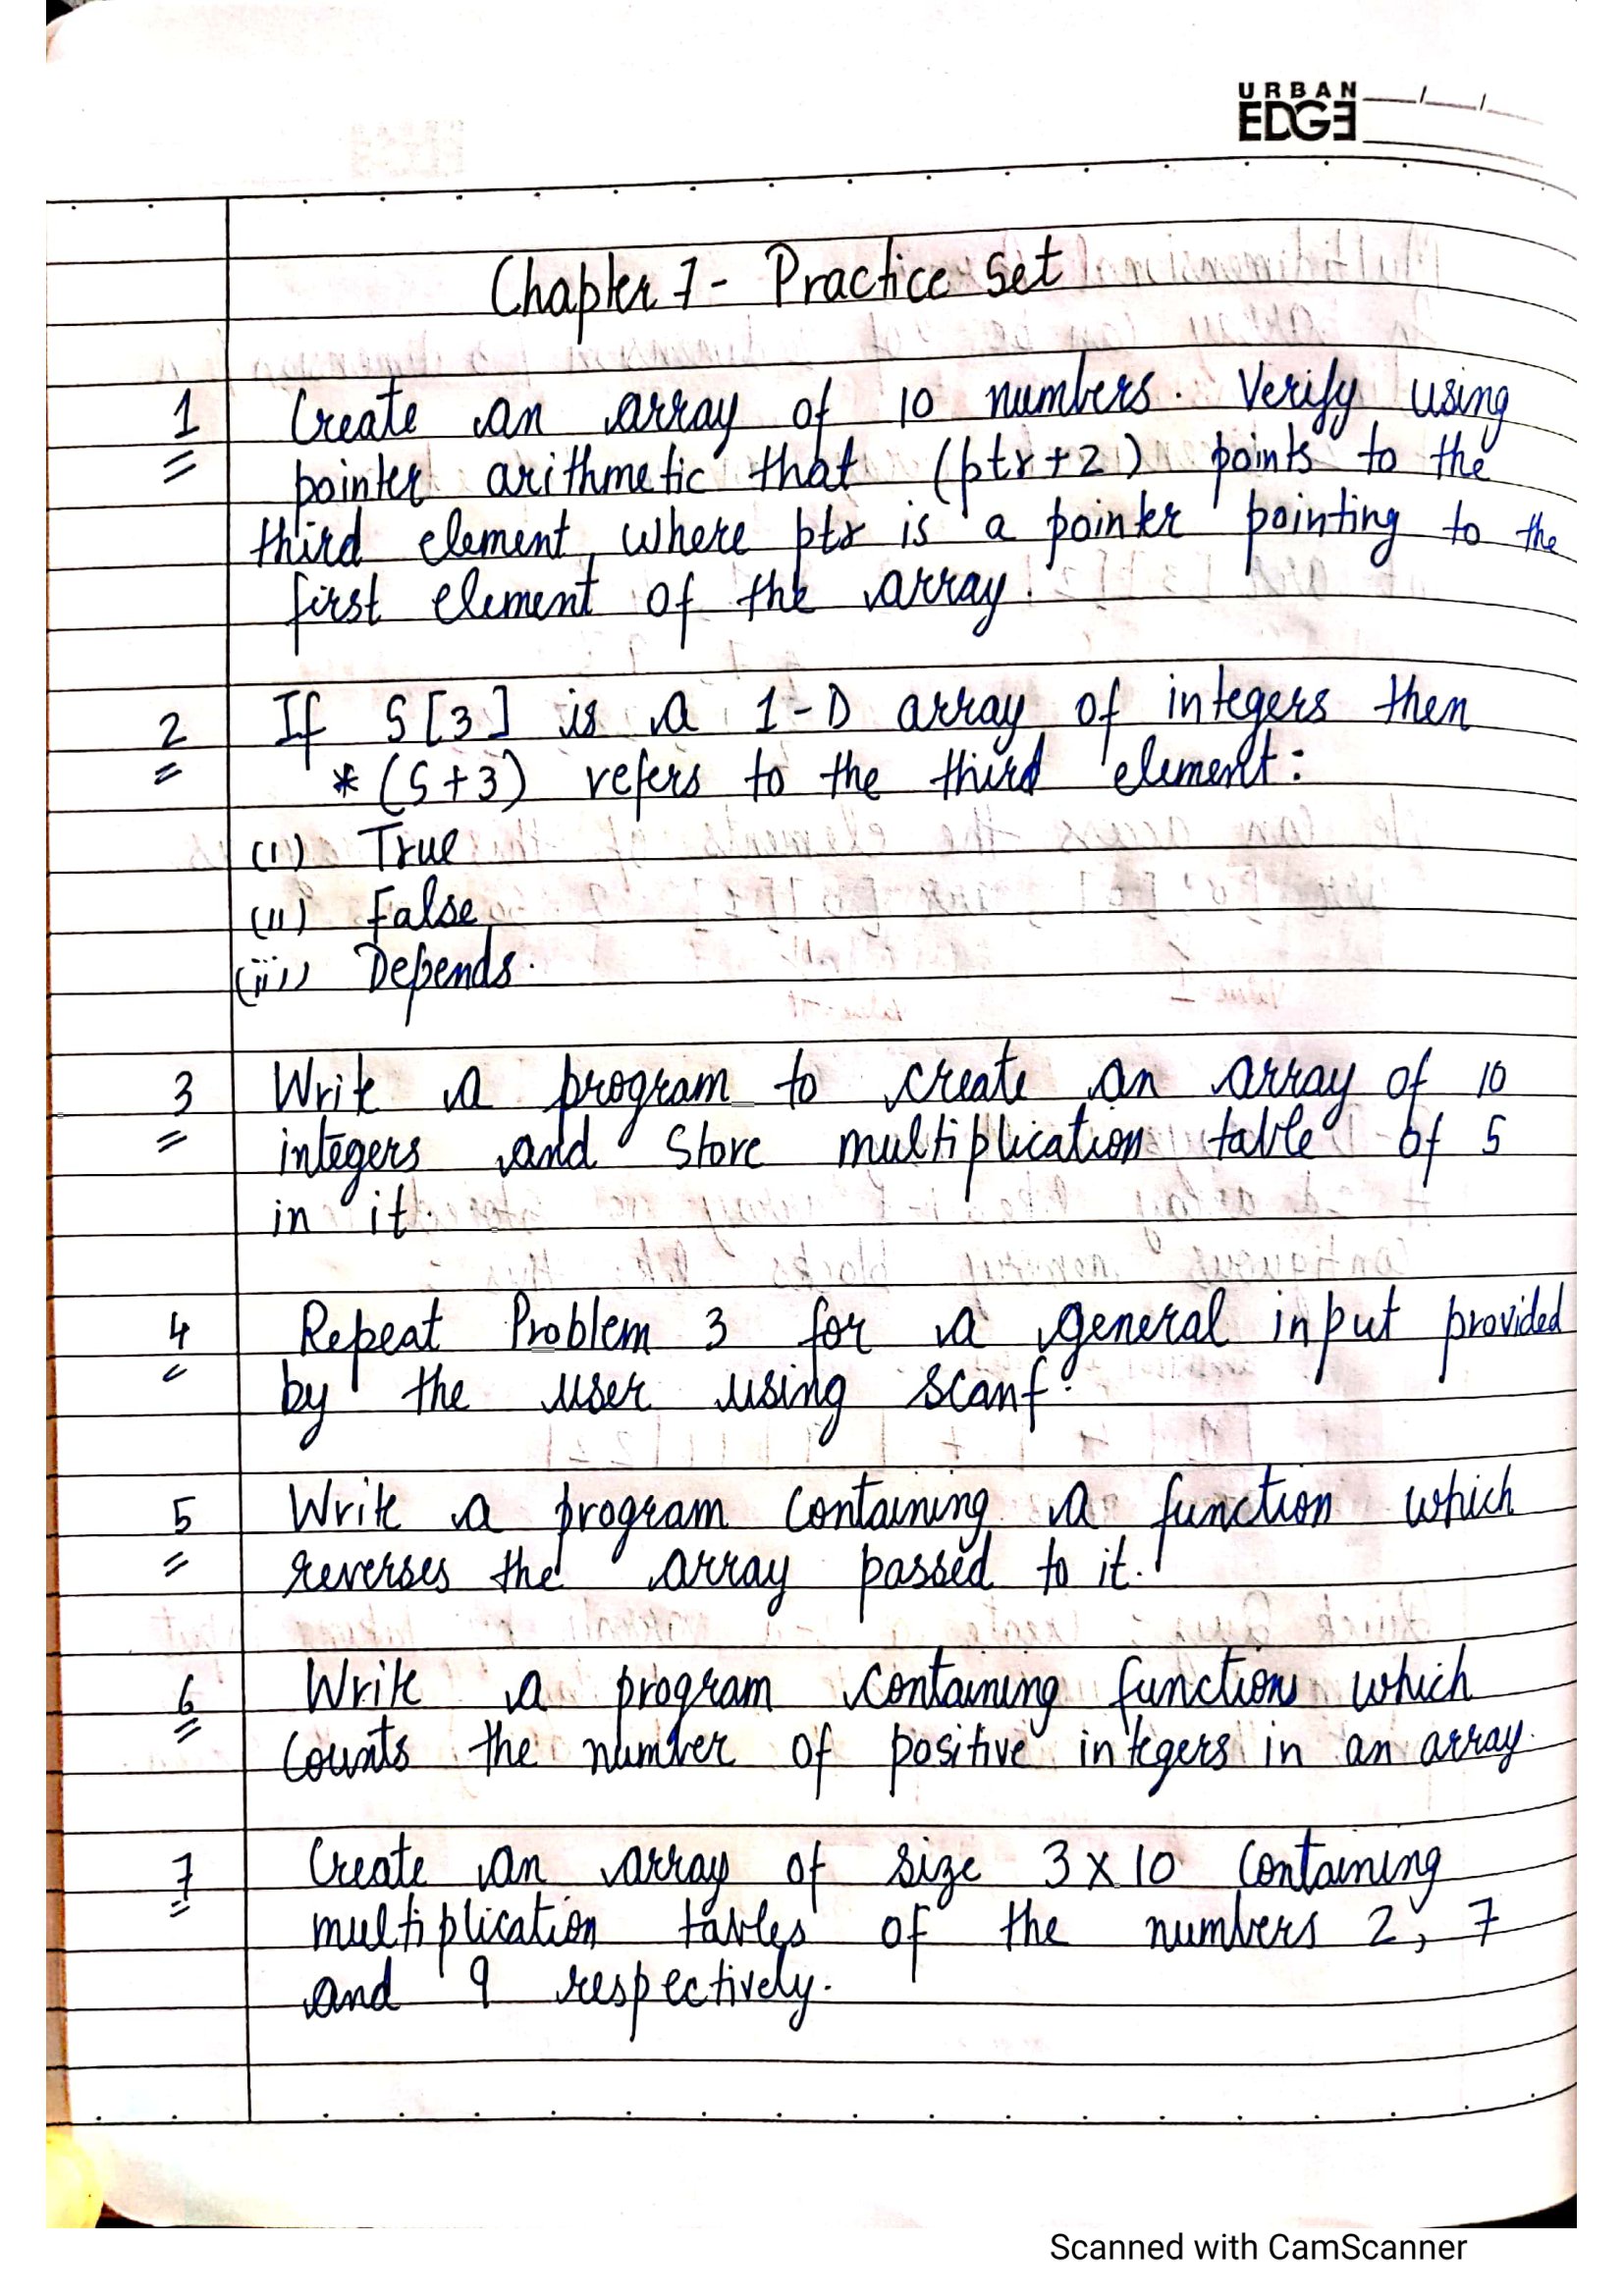 URBAN
EDGE
Chapter 7 - Practice Set
1 Create an array of 10 numbers. Verify using
pointer arithmetic that (ptr+2) points to the
third element, where ptr is a pointer pointing to the
first element of the array.
2 If S[3] is a 1-D array of integers then
*(S+3) refers to the third element:
(i) True
(ii) False
(iii) Depends.
3 Write a program to create an array of 10
integers and store multiplication table of 5
in it.
4 Repeat Problem 3 for a general input provided
by the user using scanf.
5 Write a program containing a function which
reverses the array passed to it.
6 Write a program containing functions which
counts the number of positive integers in an array.
7 Create an array of size 3x10 containing
multiplication tables of the numbers 2, 7
and 9 respectively.
Scanned with CamScanner